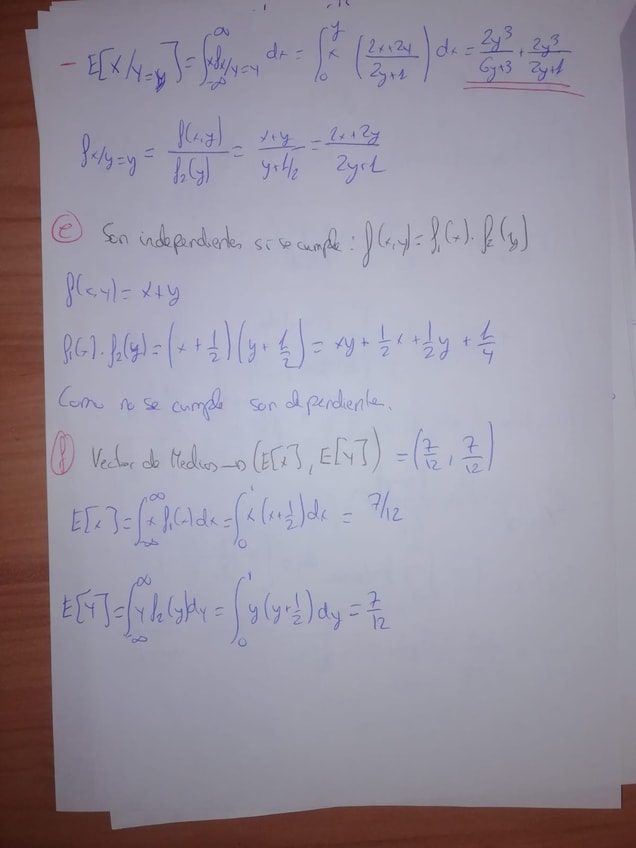 - E[X/Y=y] = ∫_{-∞}^{∞} x f x/Y=y dx = ∫_0^y x ((2x+2y)/(2y+1)) dx = 2y³/(6y+3) + 2y³/(2y+1)
f x/Y=y = f(x,y)/f₂(y) = (x+y)/(y+1/2) = (2x+2y)/(2y+1)
e) Son independientes si se cumple: f(x,y) = f₁(x) · f₂(y)
f(x,y) = x+y
f₁(x) · f₂(y) = (x + 1/2)(y + 1/2) = xy + 1/2 x + 1/2 y + 1/4
Como no se cumple son dependiente.
f) Vector de Medias → (E[X], E[Y]) = (7/12, 7/12)
E[X] = ∫_{-∞}^{∞} x f₁(x) dx = ∫_0^1 x(x+1/2) dx = 7/12
E[Y] = ∫_{-∞}^{∞} y f₂(y) dy = ∫_0^1 y(y+1/2) dy = 7/12